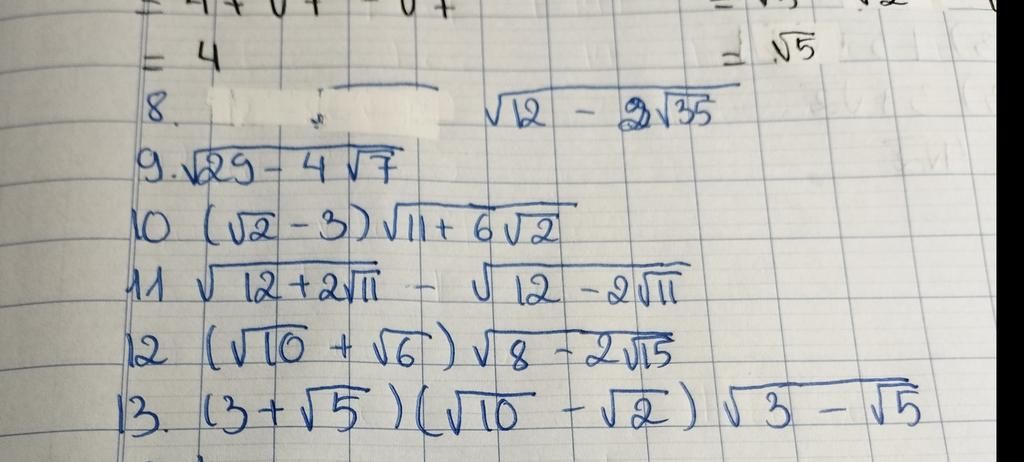 = 4 = √5
8. √(12 - 2√35)
9. √(29 - 4√7)
10 (√2 - 3)√(11 + 6√2)
11 √(12 + 2√11) - √(12 - 2√11)
12 (√10 + √6)√(8 - 2√15)
13. (3 + √5)(√10 - √2)√(3 - √5)